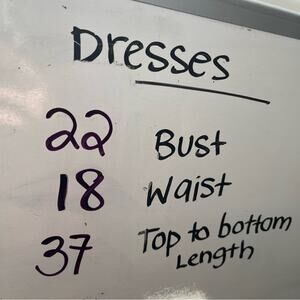 Dresses
22 Bust
18 Waist
37 Top to bottom
Length